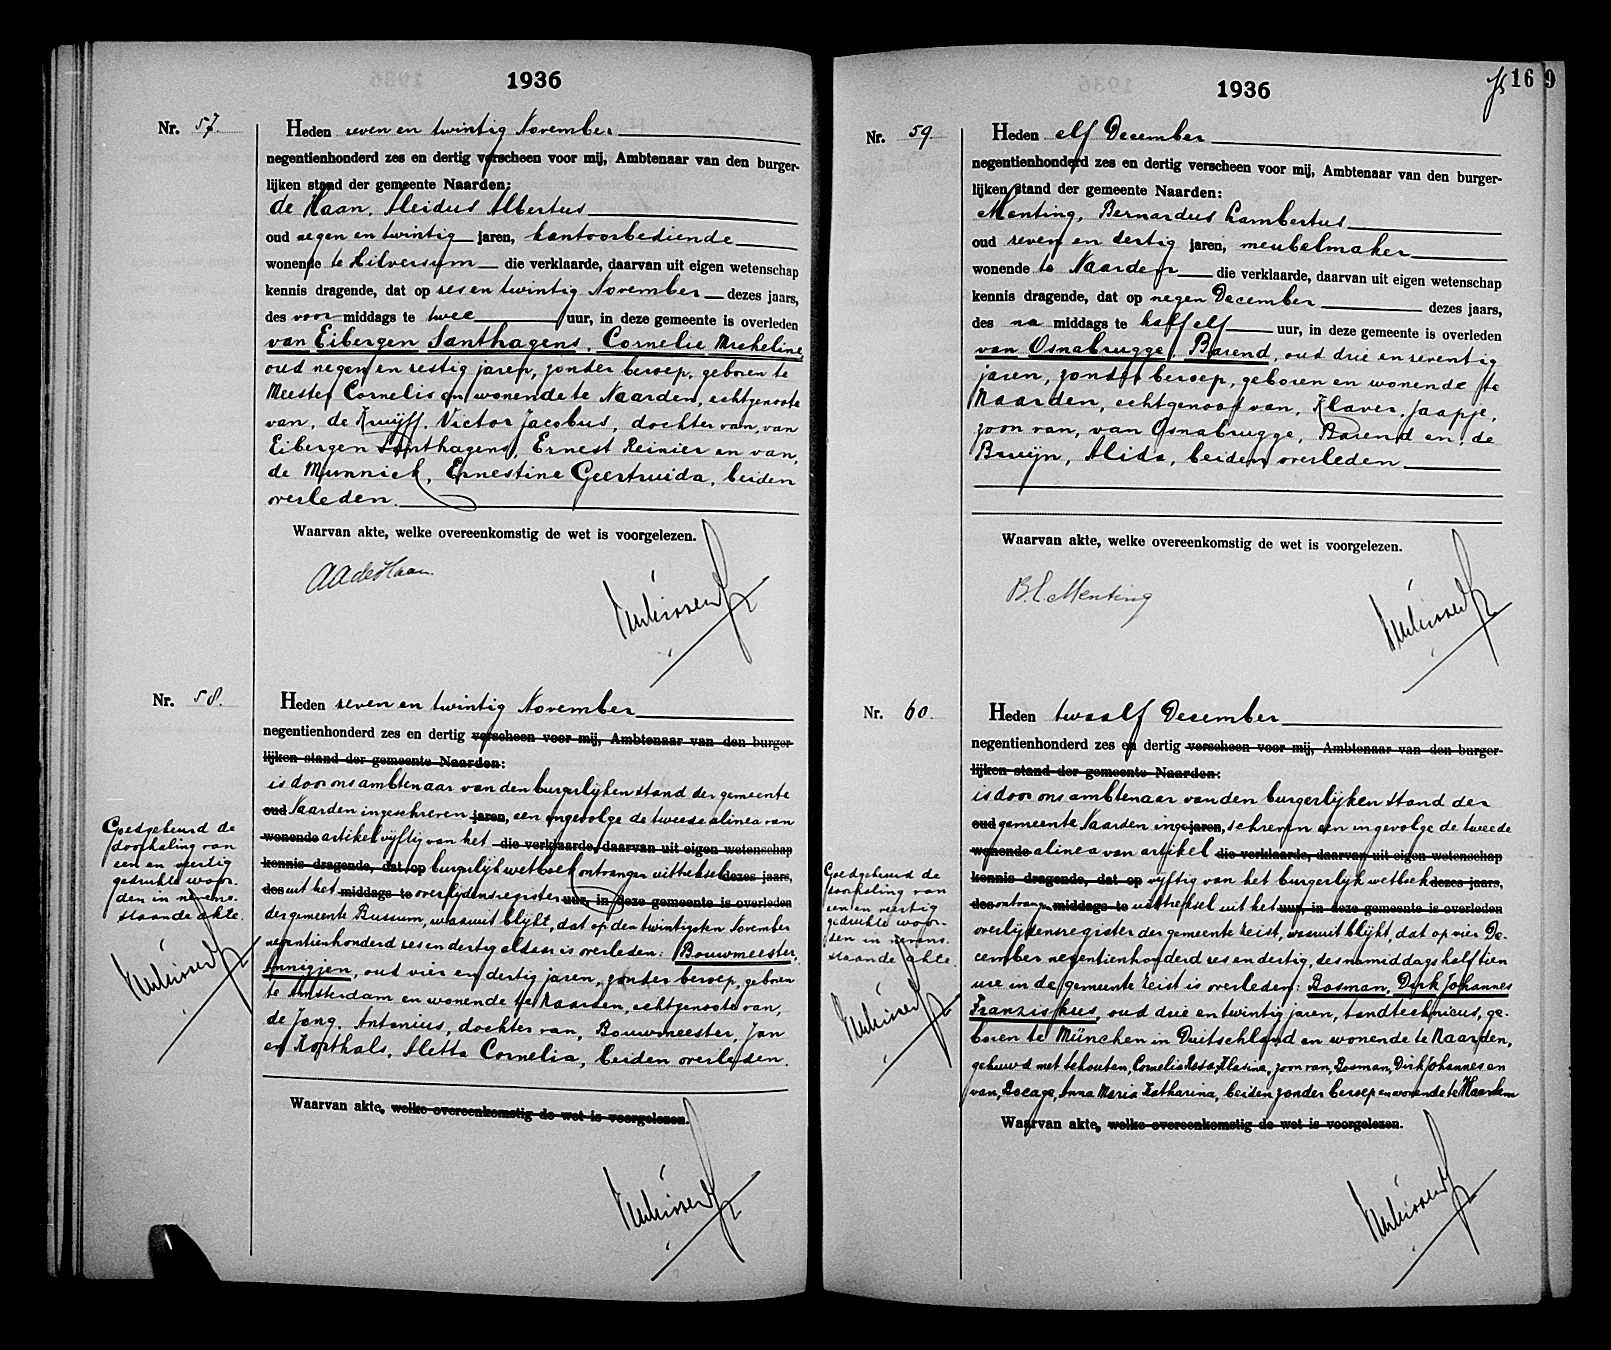 1936
Nr. 57.
Heden seven en twintig November
negentienhonderd zes en dertig verscheen voor mij, Ambtenaar van den burger-
lijken stand der gemeente Naarden:
de Haan, Aleidus Albertus
oud negen en twintig jaren, kantoorbediende
wonende te Hilversum die verklaarde, daarvan uit eigen wetenschap
kennis dragende, dat op ses en twintig November dezes jaars,
des voor middags te twee uur, in deze gemeente is overleden
van Eibergen Santhagens, Cornelie Micheline
oud negen en sestig jaren, zonder beroep, geboren te
Meester Cornelis en wonende te Naarden, echtgenoote
van, de Kruyff, Victor Jacobus, dochter van, van
Eibergen Santhagens, Ernest Reinier en van,
de Munnick, Ernestine Geertruida, beiden
overleden.
Waarvan akte, welke overeenkomstig de wet is voorgelezen.
AAdeHaan
Nr. 58.
Heden seven en twintig November
negentienhonderd zes en dertig verscheen voor mij, Ambtenaar van den burger-
lijken stand der gemeente Naarden:
is door ons ambtenaar van den burgerlijken stand der gemeente
oud Naarden ingeschreven jaren, een ingevolge de tweede alinea van
wonende artikel vijftig van het die verklaarde, daarvan uit eigen wetenschap
kennis dragende, dat op burgerlijk wetboek ontvangen uittreksel dezes jaars,
des uit het middags te overlijdensregister uur, in deze gemeente is overleden
der gemeente Bussum, waaruit blijkt, dat op den twintigsten November
negentienhonderd ses en dertig aldaar is overleden: Bouwmeester,
Annigjen, oud vier en dertig jaren, zonder beroep, geboren
te Amsterdam en wonende te Naarden, echtgenoote van,
de Jong, Antonius, dochter van, Bouwmeester, Jan
en Korthals, Aletta Cornelia, beiden overleden.
Waarvan akte, welke overeenkomstig de wet is voorgelezen.
Goedgekeurd de
doorhaling van
een en veertig
gedrukte woor-
den in nevens-
staande akte.
1936
169
Nr. 59
Heden elf December
negentienhonderd zes en dertig verscheen voor mij, Ambtenaar van den burger-
lijken stand der gemeente Naarden:
Menting, Bernardus Lambertus
oud seven en dertig jaren, meubelmaker
wonende te Naarden die verklaarde, daarvan uit eigen wetenschap
kennis dragende, dat op negen December dezes jaars,
des na middags te half elf uur, in deze gemeente is overleden
van Osnabrugge, Barend, oud drie en seventig
jaren, zonder beroep, geboren en wonende te
Naarden, echtgenoot van, Klaver, Jaapje,
zoon van, van Osnabrugge, Barend en, de
Bruijn, Alida, beiden overleden
Waarvan akte, welke overeenkomstig de wet is voorgelezen.
B.L. Menting
Nr. 60.
Heden twaalf December
negentienhonderd zes en dertig verscheen voor mij, Ambtenaar van den burger-
lijken stand der gemeente Naarden:
is door ons ambtenaar van den burgerlijken stand der
oud gemeente Naarden inge jaren, schreven een ingevolge de tweede
wonende alinea van artikel die verklaarde, daarvan uit eigen wetenschap
kennis dragende, dat op vijftig van het burgerlijk wetboek dezes jaars,
des ontvangen middags te uittreksel uit het uur, in deze gemeente is overleden
overlijdensregister der gemeente Zeist, waaruit blijkt, dat op vier De-
cember negentienhonderd ses en dertig, des namiddags half tien
ure in de gemeente Zeist is overleden: Bosman, Dirk Johannes
Franziskus, oud drie en twintig jaren, tandtechnicus, ge-
boren te München in Duitschland en wonende te Naarden,
gehuwd met Schouten, Cornelia Rosa Klasina, zoon van, Bosman, Dirk Johannes en
van, Bocage, Anna Maria Katharina, beiden zonder beroep en wonende te Haarlem
Waarvan akte, welke overeenkomstig de wet is voorgelezen.
Goedgekeurd de
doorhaling van
een en veertig
gedrukte woor-
den in nevens-
staande akte.